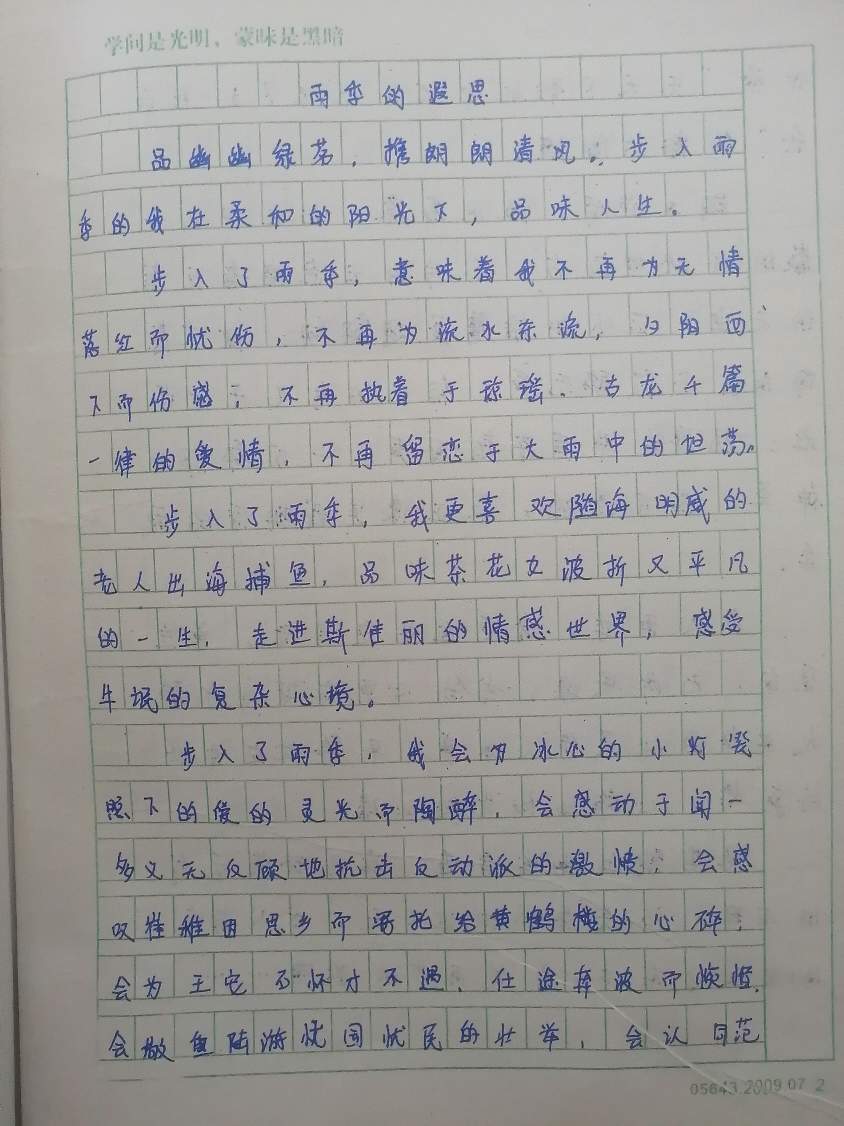 学问是光明，蒙昧是黑暗
雨季的遐思
品幽幽绿茗，携朗朗清风。步入雨
季的我在柔和的阳光下，品味人生。
步入了雨季，意味着我不再为无情
落红而忧伤，不再为流水东流，夕阳西
下而伤感；不再执着于琼瑶、古龙千篇
一律的爱情，不再留恋于大雨中的坦荡。
步入了雨季，我更喜欢随海明威的
老人出海捕鱼，品味茶花女波折又平凡
的一生，走进斯佳丽的情感世界，感受
牛氓的复杂心境。
步入了雨季，我会为冰心的小灯笼
照下的爱的灵光而陶醉，会感动于闻一
多义无反顾地抗击反动派的激愤，会感
叹崔颢因思乡而寄托给黄鹤楼的心碎；
会为王它怀才不遇、仕途奔波而惋惜，
会敬重陆游忧国忧民的壮举，会认同范
05643.2009.07 2